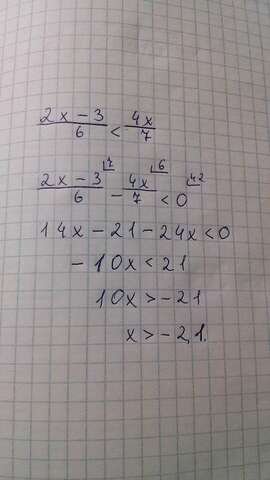 (2x-3)/6 < 4x/7
(2x-3)/6 ⌋7 - 4x/7 ⌋6 < 0 ⌋42
14x-21-24x<0
-10x<21
10x>-21
x>-2,1.